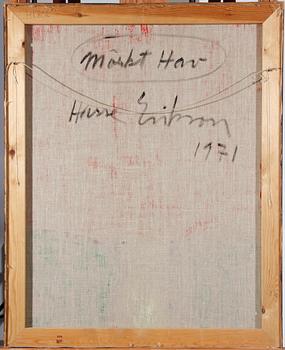 Mörkt Hav
Hasse Erikson
1971